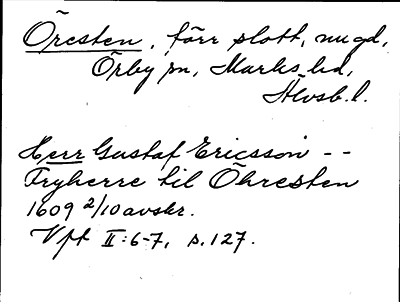 Öresten, förr slott, nu gd,
Örby sn, Marks hd,
Älvsb. l.
Herr Gustaf Ericsson --
Fryherre til Öhresten
1609 2/10 avskr.
Vft II:6-7, s. 127.